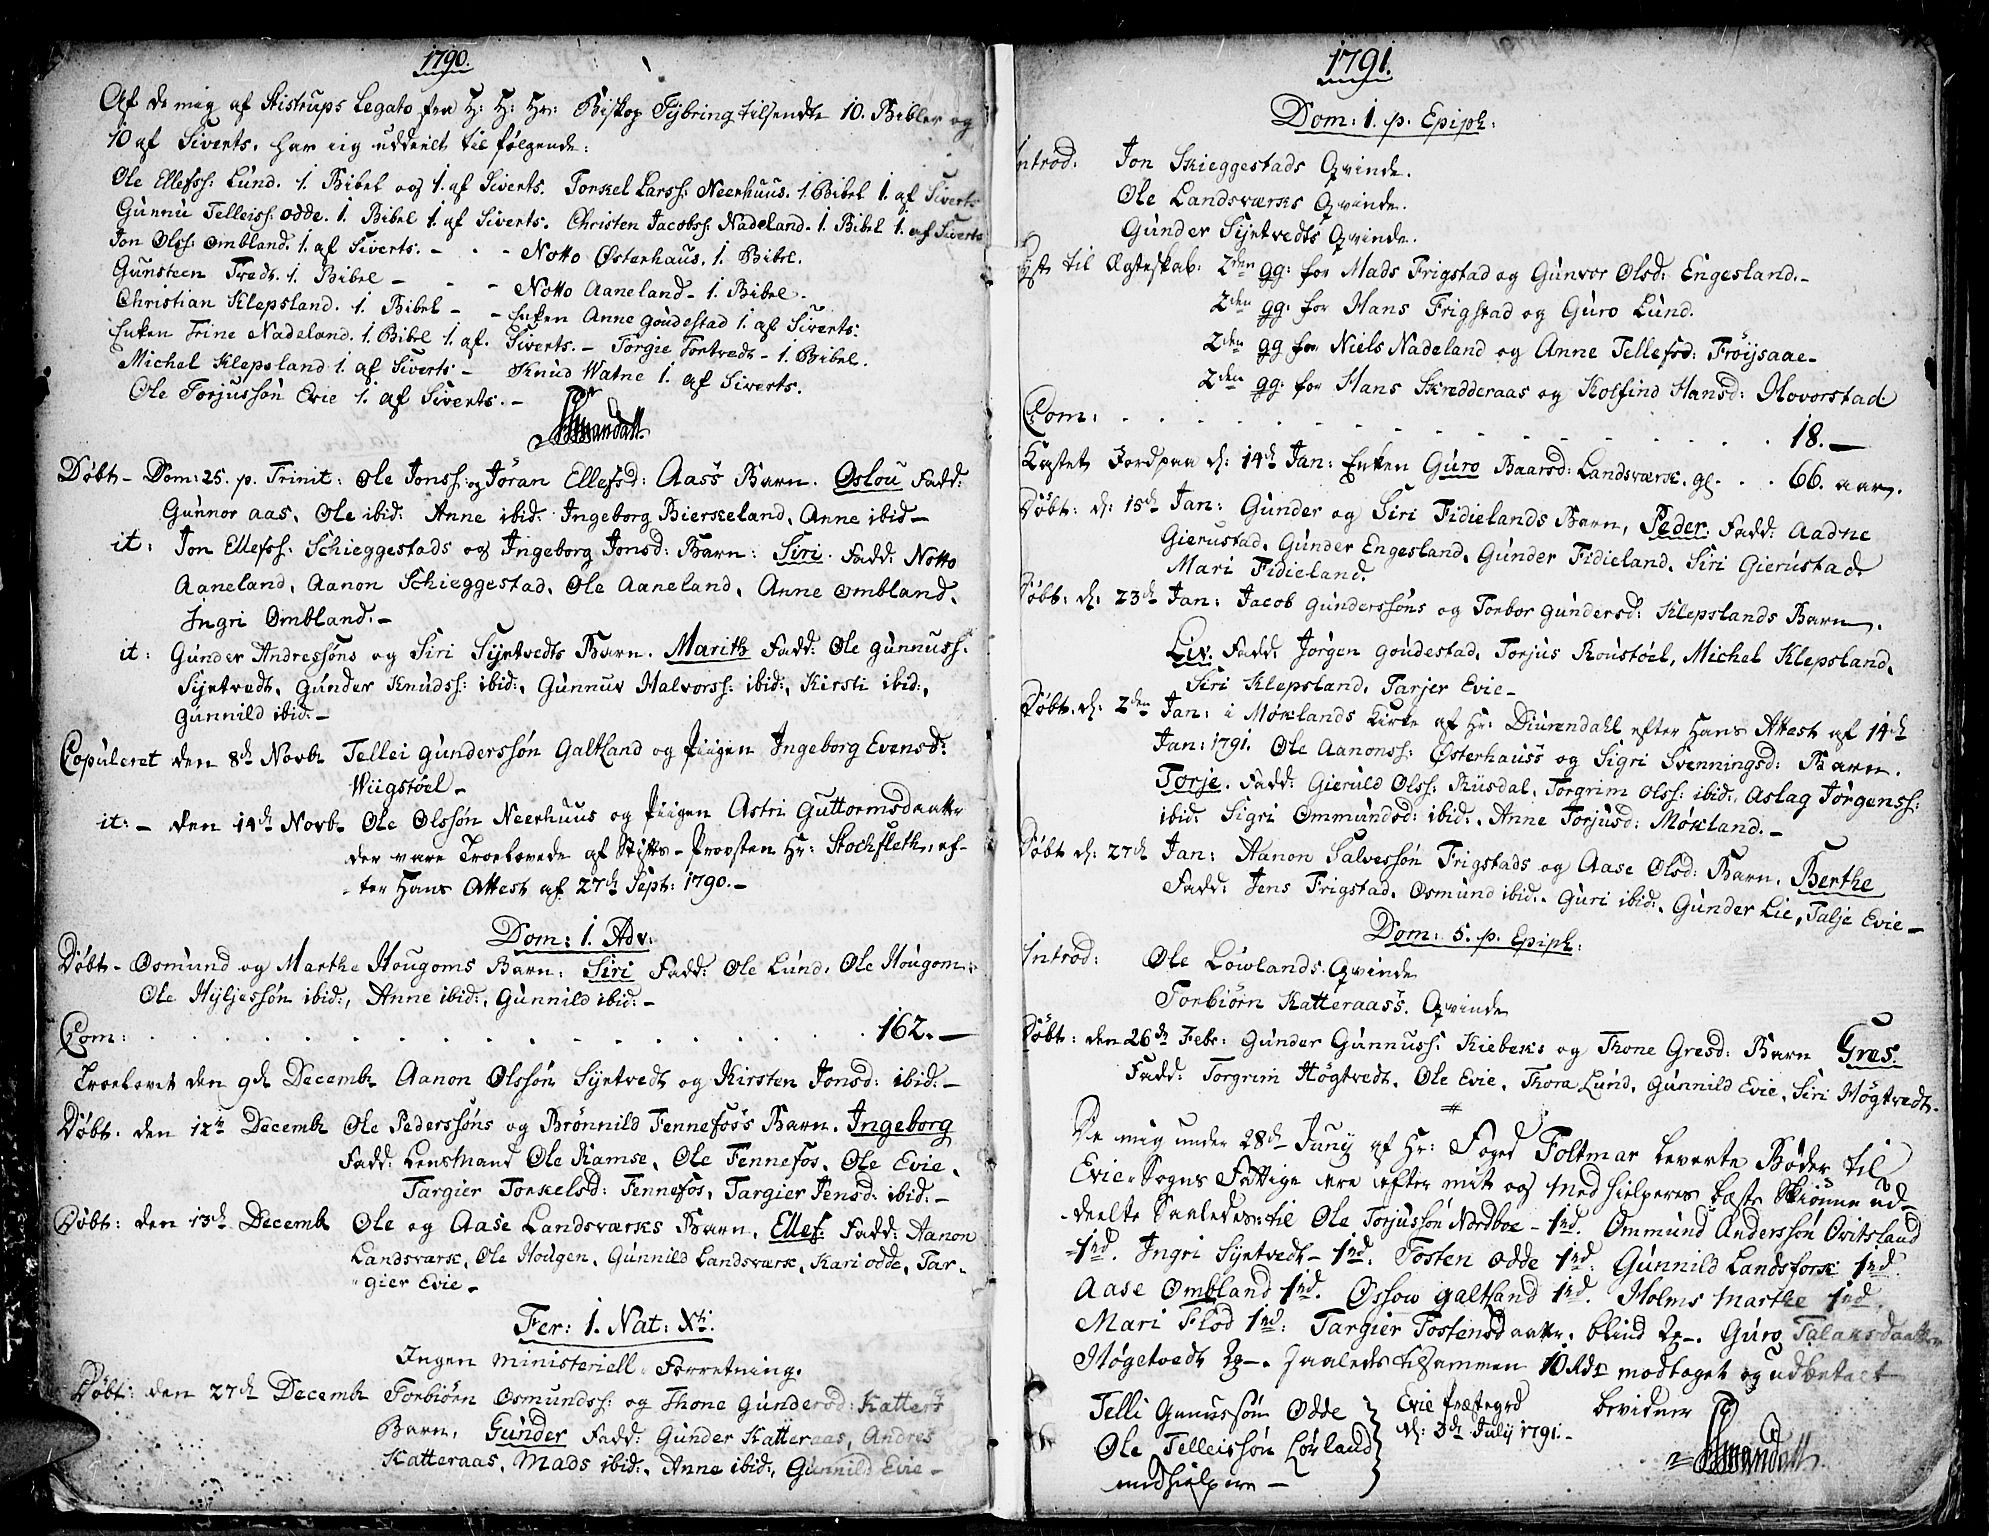 1790.
Af de mig af Stistrups Legato fra H: H: Hr: Biskop Tybring tilsendte 10. Bibler og
10 af Siverts. har iig uddeelt til følgende:
Ole Ellefss: Lund. 1. Bibel og 1. af Siverts. Torkel Larss: Neerhuus. 1. Bibel 1. af Siverts
Gunnu Telleiss. Odde. 1. Bibel 1. af Siverts. Christen Jacobss: Nadeland. 1. Bibel 1. af Siverts
Jon Olss: Ombland. 1. af Siverts. - - - Notto Østerhaus. 1. Bibel.
Gunsteen Tredt. 1. Bibel - - - Notto Aaneland - 1. Bibel.
Christian Klepsland. 1. Bibel - - Enken Anne Goudestad 1. af Siverts:
Enken Trine Nadeland. 1. Bibel 1. af. Siverts. - Torgie Tortvedt - 1. Bibel.
Michel Klepsland 1. af Siverts - Knud Watne 1. af Siverts.
Ole Torjussøn Evie 1. af Siverts. -
Døbt - Dom: 25. p. Trinit: Ole Jonss: og Jøran Ellefsd: Aass Barn. Oslou Fadd:
Gunnor Aas, Ole ibid: Anne ibid: Ingeborg Bierkeland, Anne ibid -
it: Jon Ellefss: Schieggestads og Ingeborg Jonsd: Barn: Siri. Fadd: Notto
Aaneland, Aanon Schieggestad, Ole Aaneland, Anne Ombland,
Ingri Ombland. -
it: Gunder Andressøns og Siri Syrtvedts Barn. Marith Fadd: Ole Gunnuss.
Syrtvedt, Gunder Knudss: ibid:, Gunnuv Halvorss: ibid:, Kirsti ibid:,
Gunnild ibid: -
Copuleret den 8de Novbr Tellei Gunderssøn Galteland og Piigen Ingeborg Evensd:
Wiigstøel -
it: - den 14de Novb. Ole Olssøn Neerhuus og Piigen Astri Guttormsdaatter
der vare Troelovede af Stifts-Provsten Hr: Stochfleth, ef-
ter Hans Attest af 27de Sept: 1790. -
Dom: 1. Adv:
Døbt - Osmund og Marthe Hougoms Barn: Siri Fadd: Ole Lund, Ole Hougom,
Ole Hyljessøn ibid:, Anne ibid:, Gunnild ibid: -
Com: . . . . . . . . . . . . 162. -
Troelovet den 9de Decembr Aanon Olssøn Syrtvedt og Kirsten Jonsd: ibid: -
Døbt. den 12te Decembr Ole Pederssøns og Brønnild Fennefoss Barn. Ingeborg
Fadd: Lensmand Ole Ramse, Ole Fennefos, Ole Evie,
Targier Torkelsd: Fennefos, Targier Jensd: ibid: -
Døbt: den 13de Decembr Ole og Aase Landsværks Barn, Ellef. Fadd: Aanon
Landsværk, Ole Hougen, Gunnild Landsværk, Kari Odde, Tar-
gier Evie -
Fer: 1. Nat: Xti:
Ingen ministeriell Forretning.
Døbt: den 27de Decembr Torbiørn Osmundss: og Thone Gundersd: Katter
Barn, Gunder Fadd: Gunder Katteraas, Andres
Katteraas, Mads ibid:, Anne ibid:, Gunnild Evie -
1791.
Dom: 1. p. Epiph:
Introd: Jon Skieggestads Qvinde.
Ole Landsværks Qvinde.
Gunder Syrtvedts Qvinde.
Lyst til Ægteskab: 2den gg: for Mads Frigstad og Gunvor Olsd: Engesland. -
2den gg: for Hans Frigstad og Guro Lund.
2den gg for Niels Nadeland og Anne Tellefsd: Frøysaae -
2den gg: for Hans Skredderaas og Kolfind Hansd: Hovorstad.
Com: . . . . . . . . . . 18. -
Kastet Jord paa d: 14de Jan: Enken Guro Baarsd: Landsværk. gl. . . 66. aar.
Døbt: d: 15de Jan: Gunder og Siri Fidielands Barn, Peder. Fadd: Aadne
Gierustad, Gunder Engesland, Gunder Fidieland, Siri Gierustad,
Mari Fidieland.
Døbt: d: 23de Jan: Jacob Gunderssøns og Torbor Gundersd: Klepslands Barn.
Liv. Fadd. Jørgen Goudestad, Torjus Roustøel, Michel Klepsland,
Siri Klepsland, Tarjer Evie -
Døbt. d: 2den Jan: i Moklands Kirke af Hr: Diurendahl efter Hans Attest af 14de
Jan: 1791. Ole Aanonss: Østerhauss og Sigri Svenningsd: Barn.
Torje. Fadd: Gieruld Olss: Riisdal, Torgrim Olss: ibid:, Aslag Jørgenss:
ibid: Sigri Ommundsd: ibid:, Anne Torjusd: Mokland. -
Døbt d: 27de Jan: Aanon Salvessøn Frigstads og Aase Olsd: Barn, Berthe
Fadd: Jens Frigstad, Osmund ibid:, Guri ibid:, Gunder Lie, Talje Evie -
Dom: 5. p. Epiph:
Introd: Ole Lowlands Qvinde
Torbiørn Katteraass. Qvinde
Døbt: den 26de Febr: Gunder Gunnuss: Kiebeks og Thone Gresd: Barn Gres.
Fadd: Torgrim Høgtvedt, Ole Evie, Thora Lund, Gunnild Evie, Siri Høgtvedt.
De mig under 28de Juny af Hr: Foged Foltmar leverte Bøder til
Evie-Sogns Fattige ere efter mit og Medhielperes beste Skiønne ud-
deelte Saaledes: til Ole Torjussøn Nordboe - 1rd. Ommund Anderssøn Ovitsland
- 1rd. Ingri Syrtvedt - 1rd. Tosten Odde 1rd. Gunnild Landsfork 1rd.
Aase Ombland 1rd. Ossow Galteland 1rd. Holms Marthe 1rd.
Mari Flod 1rd: Targier Tostensdaatter. blind 2g -. Guro Talaksdaatter
Høgetvedt 2g -. Saaledes tilsammen 10 Rdr modtaget og udbetalt
Telli Gunussøn Odde Evie Præstegrd bevidner
Ole Telleissøn Lørland d: 3de July 1791. -
medhielpere -